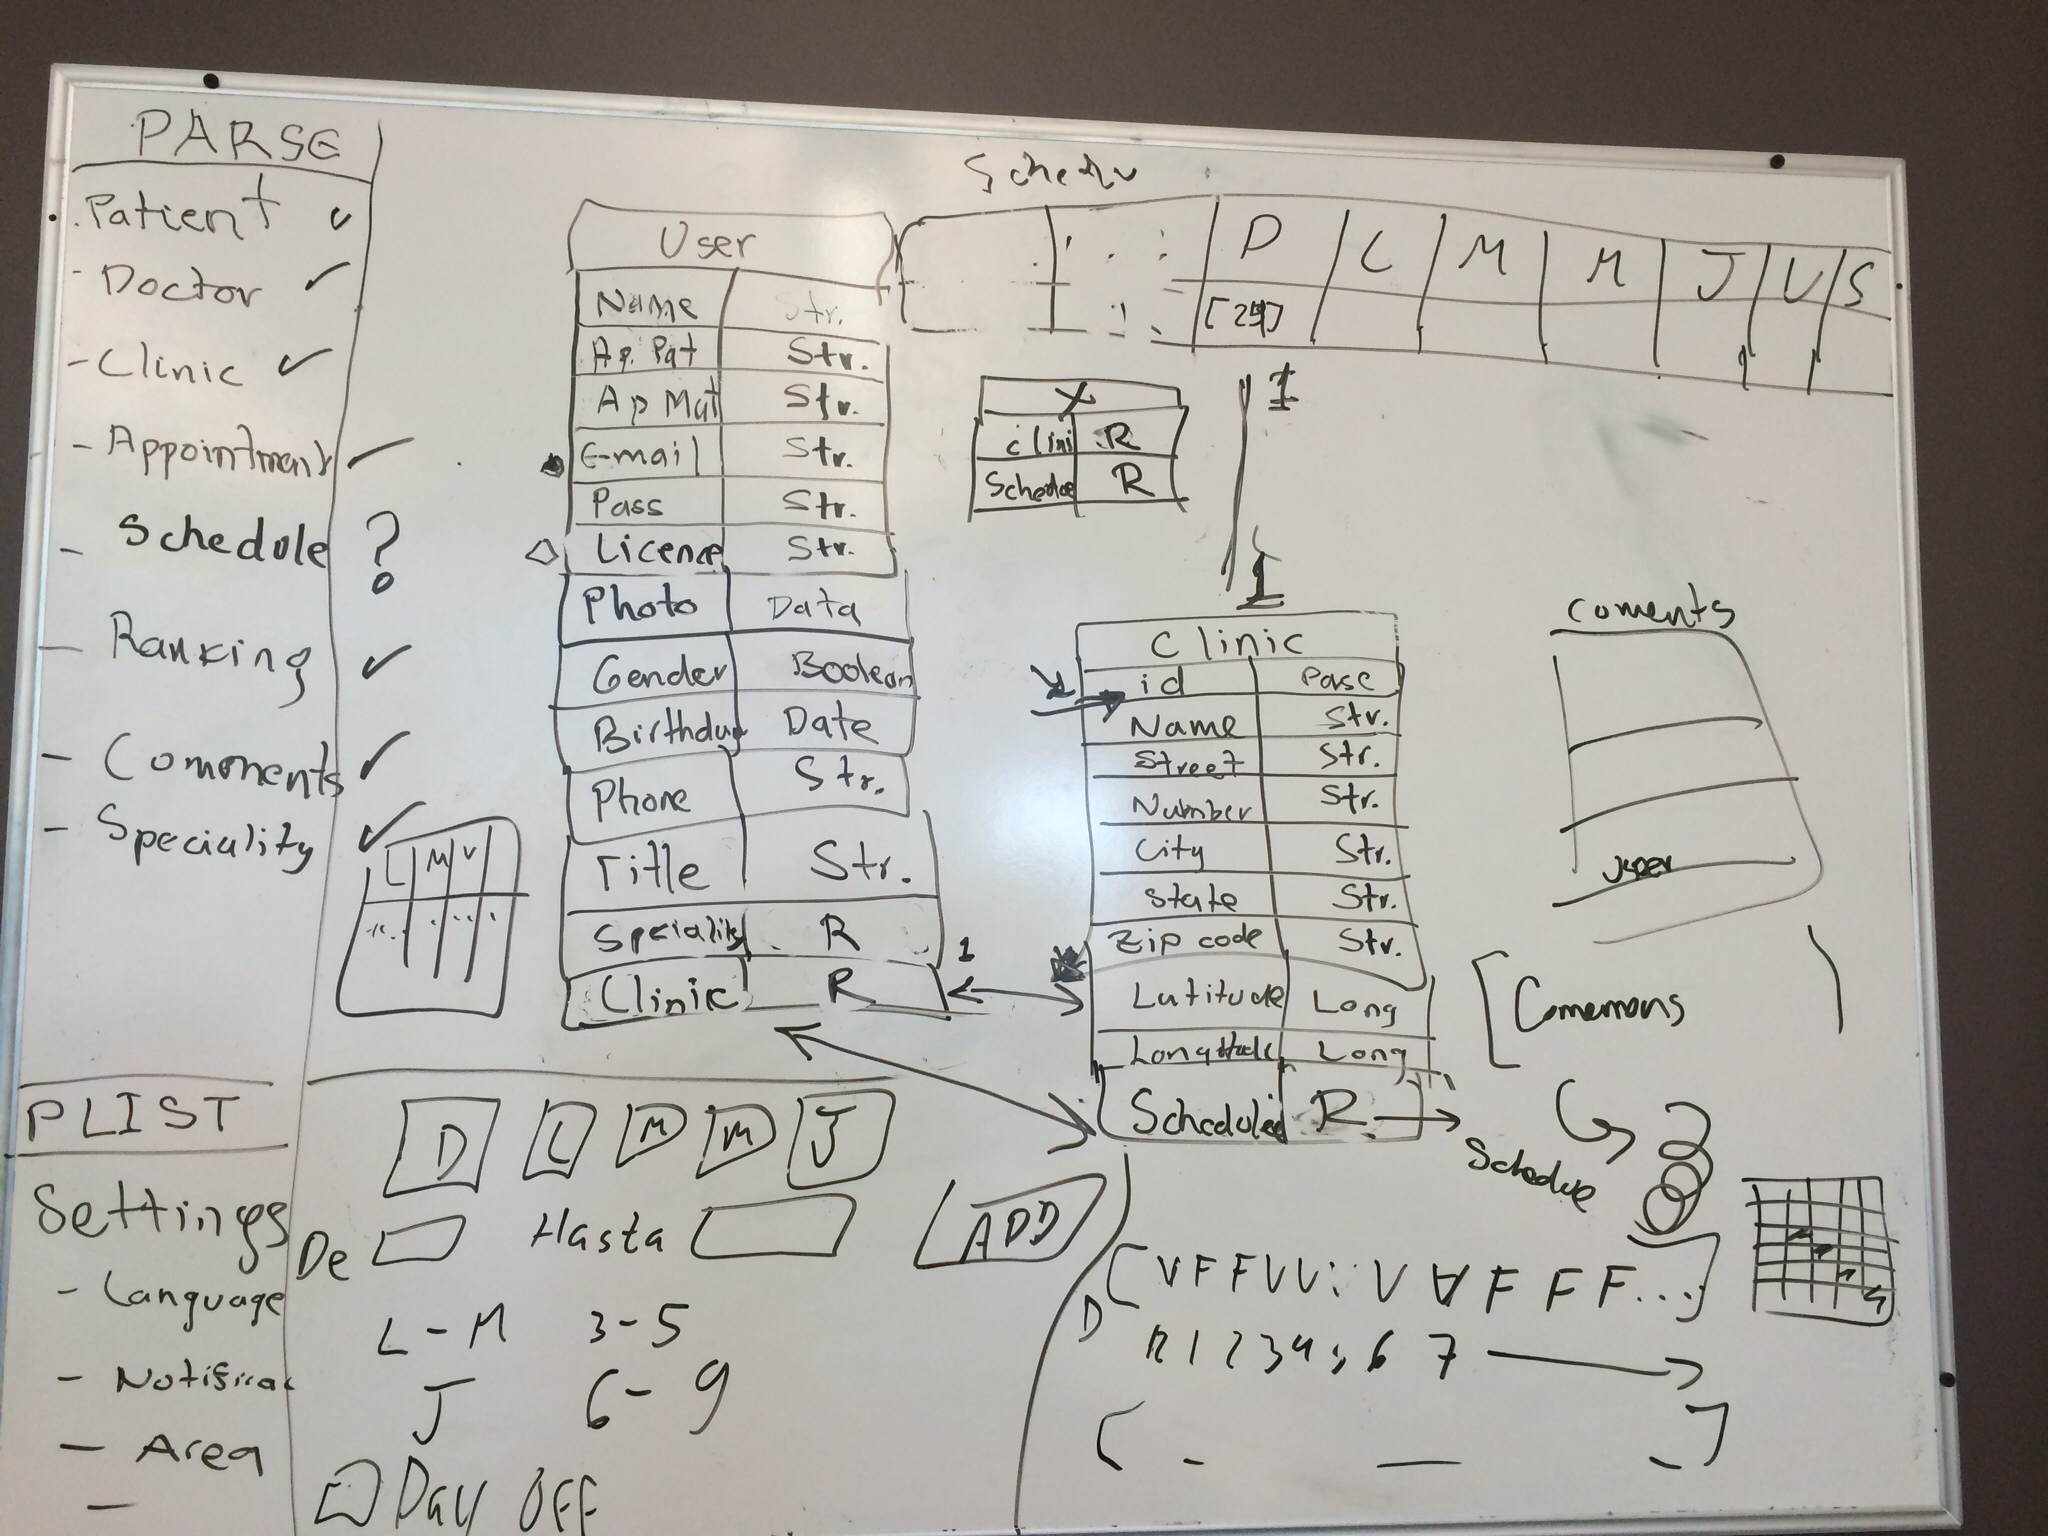 PARSE
- Patient ✓
- Doctor ✓
- Clinic ✓
- Appointment ✓
- Schedule ?
- Ranking ✓
- Comments ✓
- Speciality ✓
L M V
PLIST
Settings
- Language
-
- Area
-
User
Name Str.
Ap. Pat Str.
Ap Mat Str.
E-mail Str.
Pass Str.
Licence Str.
Photo Data
Gender Boolean
Birthday Date
Phone Str.
Title Str.
Speciality R
Clinic R
1
Schedu
D L M M J V S
[24]
X
Clini R
Schedule R
1
1
Clinic
id
Name Str.
Street Str.
Number Str.
City Str.
State Str.
Zip code Str.
Latitude Long
Longitude Long
Schedule R
Schedule
coments
D L M M J
De Hasta ADD
L-M 3-5
J 6-9
Day OFF
[V F F V V : V V F F F ...]
D
12 1 2 3 4 5 6 7
[ - — - ]